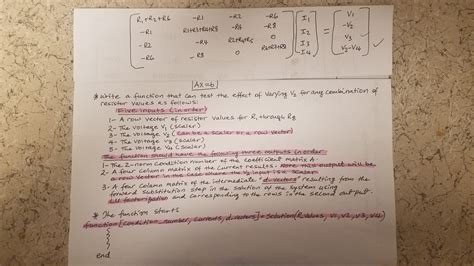 R1+R2+R6 -R1 -R2 -R6 I1 V1
-R1 R1+R3+R4+R8 -R4 -R8 I2 = -V2
-R2 -R4 R2+R4+R5 0 I3 V3
-R6 -R8 0 R6+R7+R8 I4
AX=b
* Write a function that can test the effect of varying V2 for any combination of
resistor values as follows:
Five inputs (in order)
1- A row vector of resistor values for R1 through R8
2- The voltage V1 (scalar)
3- The voltage V2 (can be a scalar or a row vector)
4- The voltage V3 (scalar)
5- The voltage (scalar)
The function should have the following three outputs in order
1- The 2-norm condition number of the coefficient matrix A.
2- A four column matrix of the current results. Note this output will be
a row vector in the case where the V2 input is a scalar
3- A four column matrix of the intermediate "d-vectors" resulting from the
forward substitution step in the solution of the system using
factorization and corresponding to the rows in the second output
* The function starts
function [condition_number, currents, d_vectors] = solution(R_Values, V1, V2, V3,
end